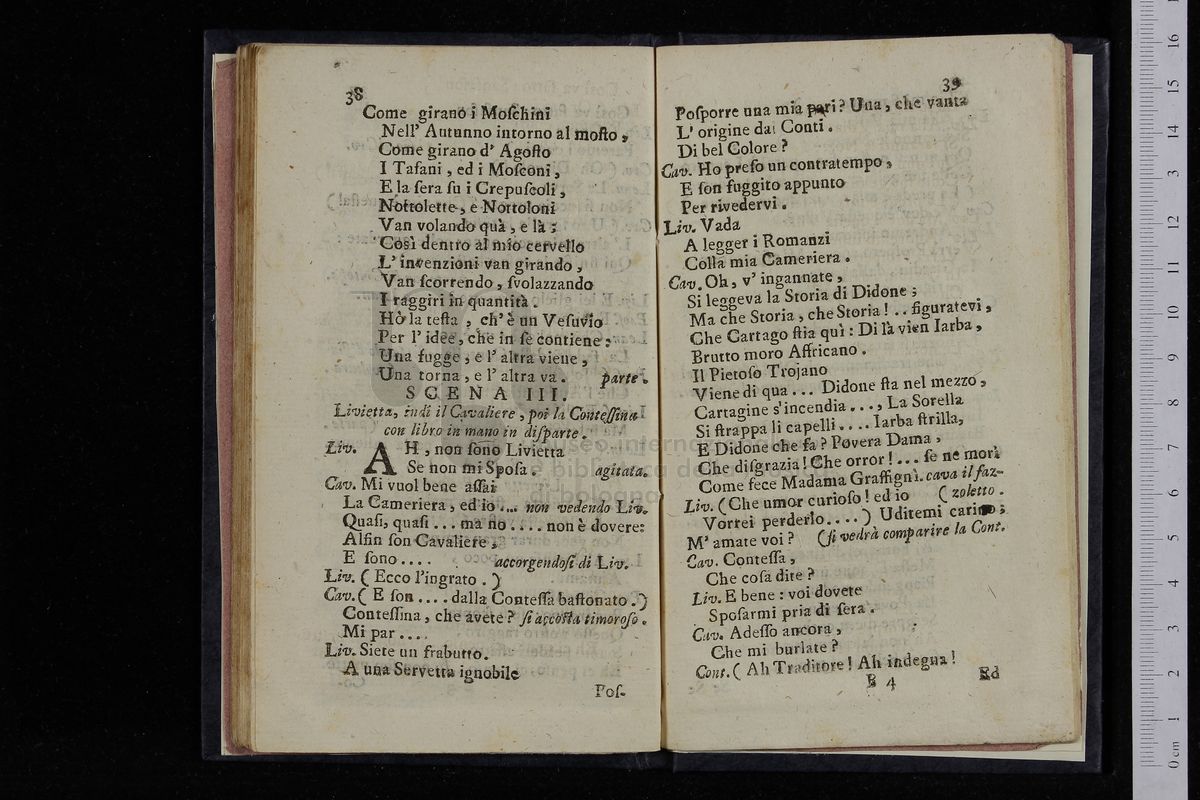 38
Come girano i Moſchini
Nell' Autunno intorno al moſto,
Come girano d' Agoſto
I Tafani, ed i Moſconi,
E la ſera ſu i Crepuſcoli,
Nottolette, e Nottoloni
Van volando quà, e là:
Così dentro al mio cervello
L' invenzioni van girando,
Van ſcorrendo, ſvolazzando
I raggiri in quantità.
Hò la teſta, ch' è un Veſuvio
Per l' idee, che in ſe contiene:
Una fugge, e l' altra viene,
Una torna, e l' altra va. parte.
SCENA III.
Livietta, indi il Cavaliere, poi la Conteſſina
con libro in mano in diſparte.
Liv. AH, non ſono Livietta
Se non mi Spoſa. agitata.
Cav. Mi vuol bene aſſai
La Cameriera, ed io .... non vedendo Liv.
Quaſi, quaſi ... ma no .... non è dovere:
Alfin ſon Cavaliere,
E ſono .... accorgendoſi di Liv.
Liv. ( Ecco l'ingrato. )
Cav. ( E ſon .... dalla Conteſſa baſtonato. )
Conteſſina, che avete? ſi accoſta timoroſo.
Mi par ....
Liv. Siete un frabutto.
A una Servetta ignobile
Poſ-
39
Poſporre una mia pari? Una, che vanta
L' origine dai Conti.
Di bel Colore?
Cav. Ho preſo un contratempo,
E ſon fuggito appunto
Per rivedervi.
Liv. Vada
A legger i Romanzi
Colla mia Cameriera.
Cav. Oh, v' ingannate,
Si leggeva la Storia di Didone;
Ma che Storia, che Storia! .. figuratevi,
Che Cartago ſtia quì: Di là vien Iarba,
Brutto moro Affricano.
Il Pietoſo Trojano
Viene di qua ... Didone ſta nel mezzo,
Cartagine s'incendia ..., La Sorella
Si ſtrappa li capelli .... Iarba ſtrilla,
E Didone che fa? Povera Dama,
Che diſgrazia! Che orror! ... ſe ne morì
Come fece Madama Graffignì. cava il faz-
Liv. (Che umor curioſo! ed io ( zoletto.
Vorrei perderlo ....) Uditemi carino;
M' amate voi? (ſi vedrà comparire la Cont.
Cav. Conteſſa,
Che coſa dite?
Liv. E bene: voi dovete
Spoſarmi pria di ſera.
Cav. Adeſſo ancora,
Che mi burlate?
Cont. ( Ah Traditore! Ah indegna!
B 4 Ed
museo internazionale
e biblioteca della musica
di bologna
0 cm 1 2 3 4 5 6 7 8 9 10 11 12 13 14 15 16